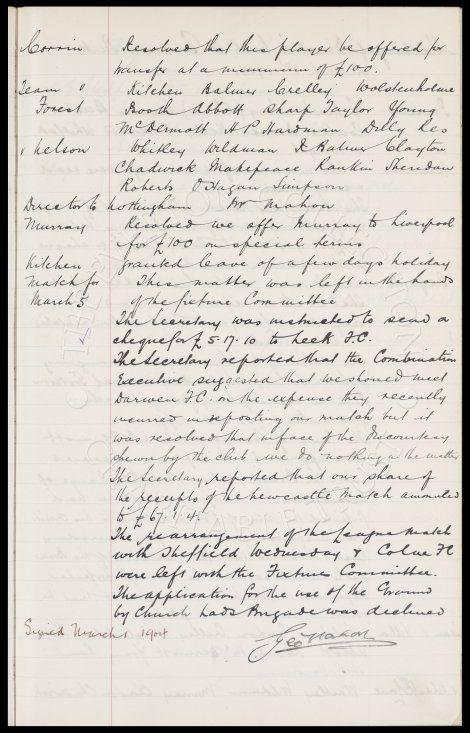 Corrin Resolved that this player be offered for
transfer at a minimum of £100.
Team v Kitchen Balmer Crelley Wolstenholme
Forest Booth Abbott Sharp Taylor Young
McDermott H P. Hardman Dilly Res
v Nelson Whitley Wildman R Balmer Clayton
Chadwick Makepeace Rankin Sheridan
Roberts O'Hagan Simpson
Director to Nottingham Mr Mahon
Murray Resolved we offer Murray to Liverpool
for £100 on special terms
Kitchen granted leave of a few days holiday
Match for This matter was left in the hands
March 5 of the fixture Committee
The Secretary was instructed to send a
cheque for £5.17.10 to Leek F.C.
The Secretary reported that the Combination
Executive suggested that we should meet
Darwen F.C. in the expense they recently
incurred in posting our match but it
was resolved that in face of the discourtesy
shewn by the club we do nothing in the matter
The Secretary reported that our share of
the receipts of the Newcastle match amounted
to £67.1.4.
The rearrangement of the League match
with Sheffield Wednesday & Colne FC
were left with the Fixture Committee.
The application for the use of the Ground
by Church Lads Brigade was declined
Signed March 1 1904
Geo Mahon